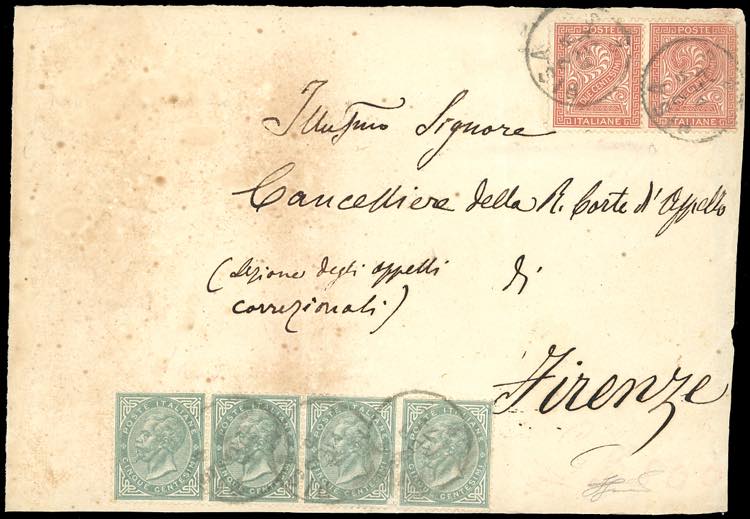 POSTE POSTE
DUE CENTESIMI DUE CENTESIMI
ITALIANE ITALIANE
Illusmo Signore
Cancelliere della R. Corte d'Appello
(Sezione degli appelli di
correzionali)
Firenze
POSTE ITALIANE POSTE ITALIANE POSTE ITALIANE POSTE ITALIANE
CINQUE CENTESIMI CINQUE CENTESIMI CINQUE CENTESIMI CINQUE CENTESIMI